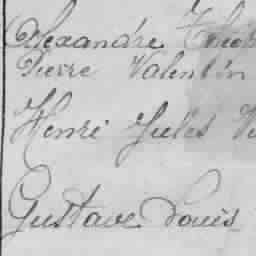 Alexandre
Pierre Valentin
Henri Jules
Gustave Louis